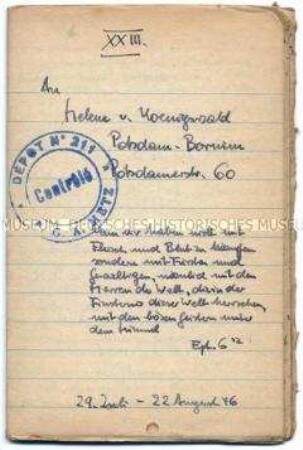 XXIII.
An
Helene v. Koenigswald
Potsdam-Bornim
Potsdamerstr. 60
DÉPOT N° 211
Centrale
METZ
MUSEUM DEUTSCHES HISTORISCHES MUSEUM
Denn wir haben nicht mit
Fleisch und Blut zu kämpfen
sondern mit Fürsten und
Gewaltigen, nämlich mit den
Herren der Welt, die in der
Finsternis dieser Welt herrschen,
mit den bösen Geistern unter
dem Himmel
Eph. 6¹²
29. Juli - 22 August 46